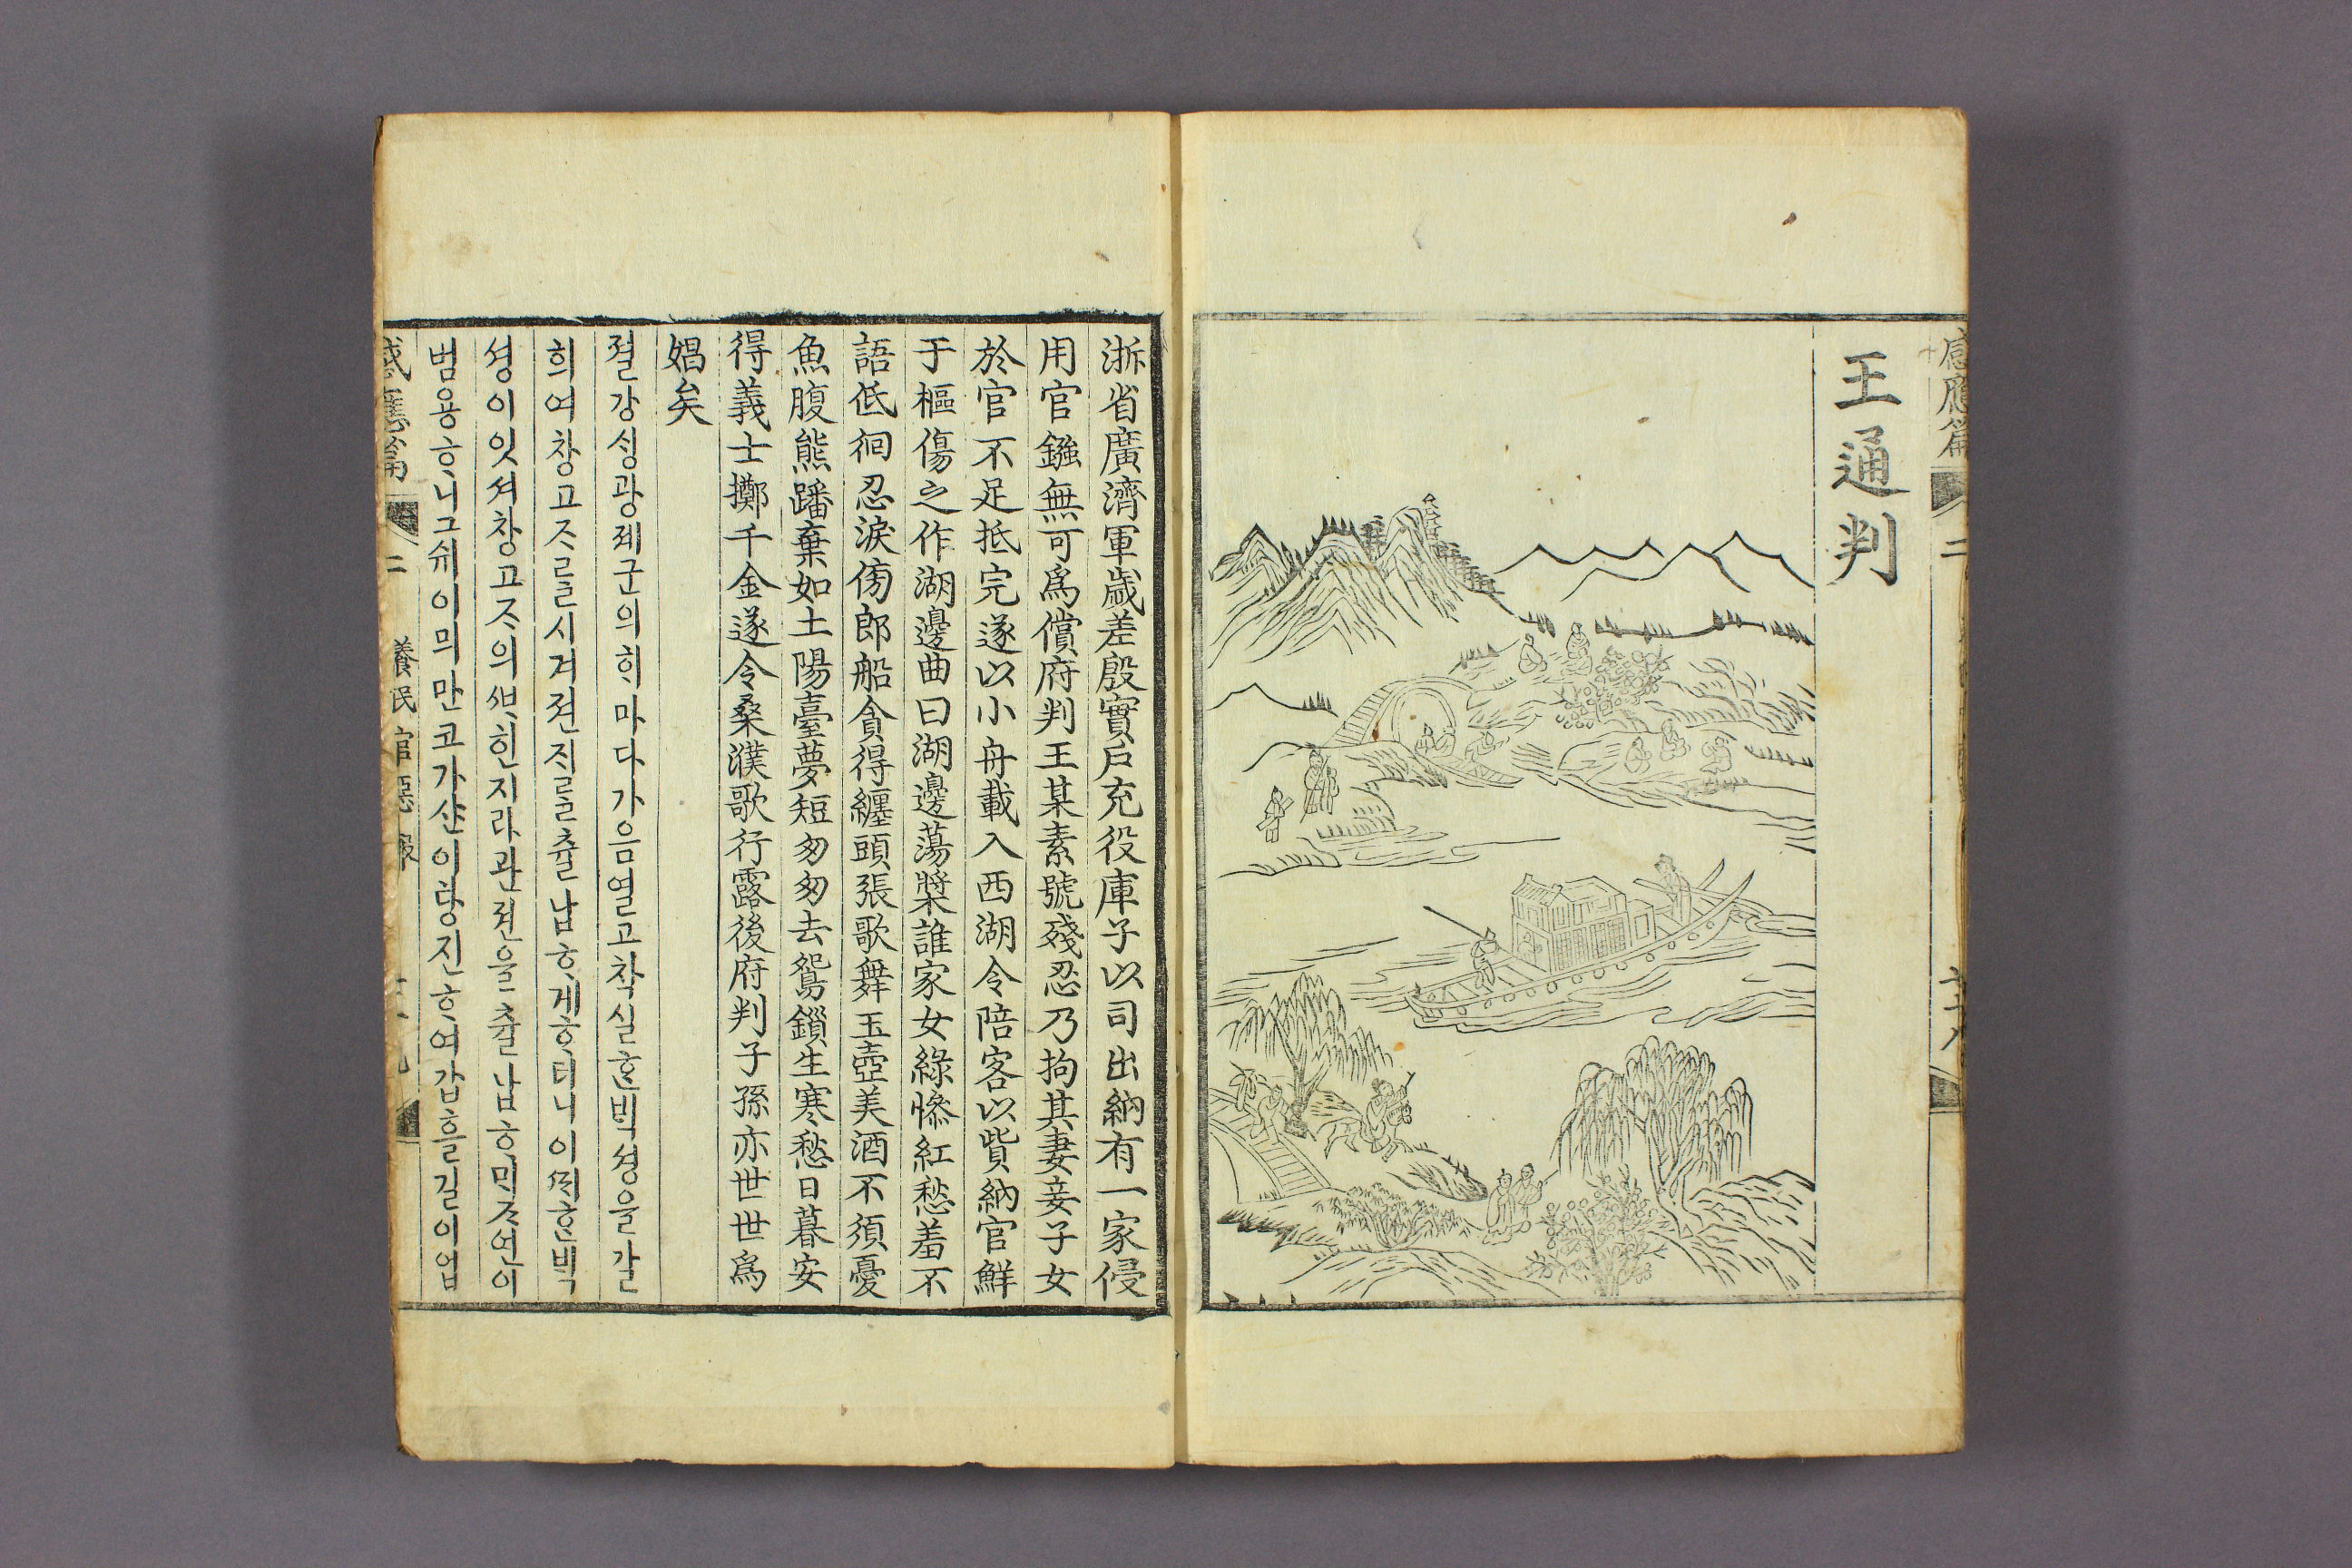 感應篇 二
王通判
浙省廣濟軍歲差殷實戶充役庫子以司出納有一家侵
用官鏹無可爲償府判王某素號殘忍乃拘其妻妾子女
於官不足抵完遂以小舟載入西湖令陪客以貲納官鮮
于樞傷之作湖邊曲曰湖邊蕩槳誰家女綠慘紅愁羞不
語低徊忍淚傍郎船貪得纏頭張歌舞玉壺美酒不須憂
魚腹熊蹯棄如土陽臺夢短匆匆去鴛鎖生寒愁日暮安
得義士擲千金遂令桑濮歌行露後府判子孫亦世世爲
娼矣
졀강셩광졔군의ᄒᆡ마다가음열고착실ᄒᆞᆫᄇᆡᆨ셩을갈
희여창고ᄌᆞ를시겨젼지를츌납ᄒᆞ게ᄒᆞ더니이ᄯᅢᄒᆞᆫᄇᆡᆨ
셩이잇셔창고ᄌᆞ의ᄲᅩᆸ힌지라관젼을츌납ᄒᆞᄆᆡᄌᆞ연이
범용ᄒᆞ니그쉬이믜만코가산이탕진ᄒᆞ여갑흘길이업
感應篇 二 養民官惡報